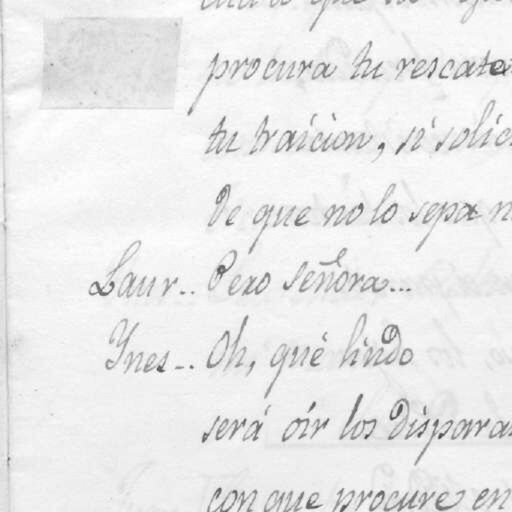 procura tu rescate
tu traicion, si solic
de que no lo sepa n
Laur.. Pero señora...
Ynes-.. Oh, qué lindo
será oir los dispara
con que procure en